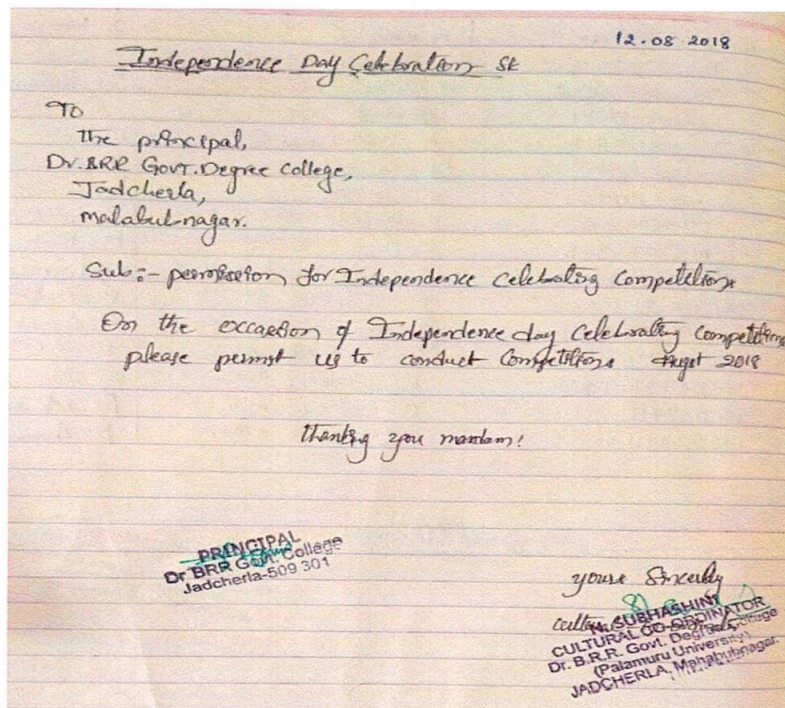 12.08.2018
Independence Day Celebration SK
To
The principal,
Dr.BRR GOVT.Degree college,
Jadcherla,
malabul-nagar.
Sub:- permission for Independence celebrating Competitions
On the occasion of Independence day Celebrating Competitions
please permit us to conduct Competitions August 2018
Thanking you mandam!
PRINCIPAL
Dr BRR Govt. College
Jadcherla-509 301
yours Sincerly
N. SUBHASHINI
CULTURAL CO-ORDINATOR
Dr. B.R.R. Govt. Degree College
(Palamuru University)
JADCHERLA, Mahabubnagar.